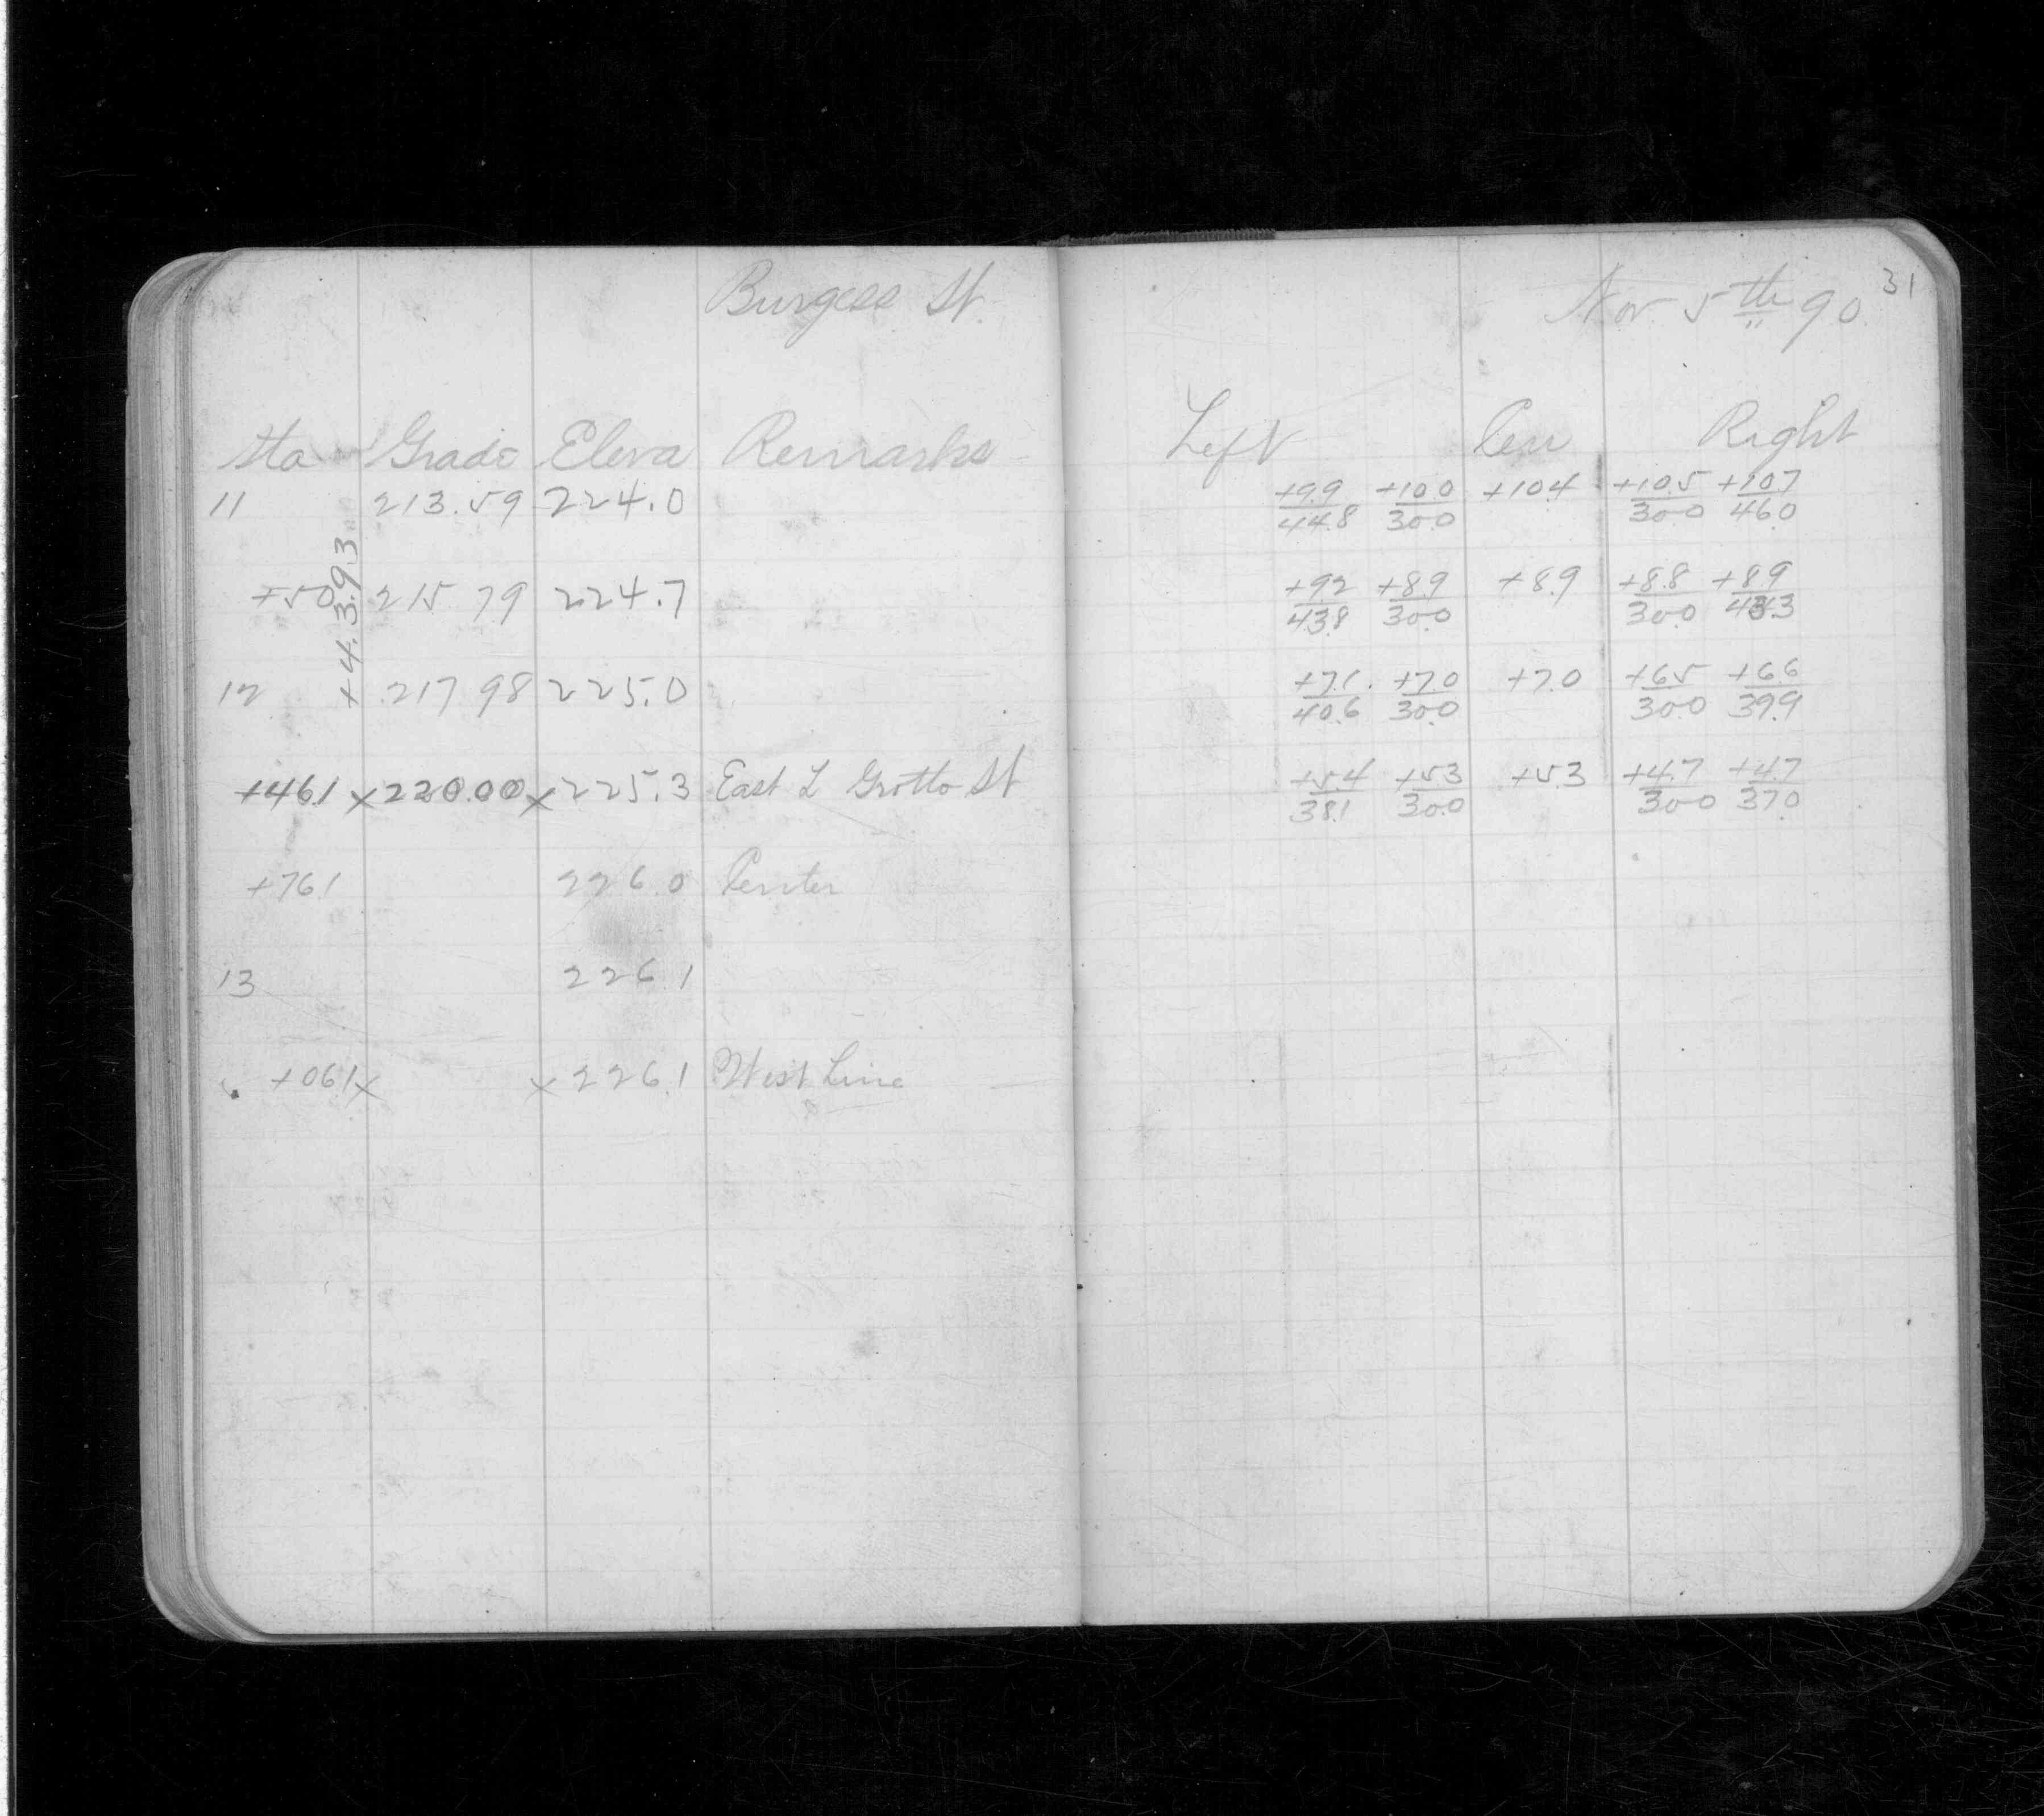 Burgess St. Nov 5th 90 31
Sta Grade Eleva Remarks Left Cen Right
11 213.59 224.0 +9.9/44.8 +10.0/30.0 +10.4 +10.5/30.0 +10.7/46.0
+4.393
+50 215.79 224.7 +9.2/43.8 +8.9/30.0 +8.9 +8.8/30.0 +8.9/43.3
12 217.98 225.0 +7.1/40.6 +7.0/30.0 +7.0 +6.5/30.0 +6.6/39.9
+46.1 x 220.00 x 225.3 East L Grotto St +5.4/38.1 +5.3/30.0 +5.3 +4.7/30.0 +4.7/37.0
+76.1 226.0 Center
13 226.1
+06.1 x x 226.1 West Line